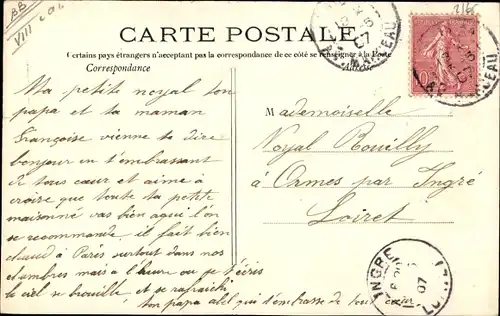 BB
VIII
2165
CARTE POSTALE
Certains pays étrangers n'acceptent pas la correspondance de ce côté se renseignent à la Poste
Correspondance
Ma petite noyal ton
papa et ta maman
Françoise vienne te dire
bonjour en t'embrassant
de tous cœur et aime à
croire que toute ta petite
maisonné vas bien aqui l'on
se recommande. il fait bien
chaud à Paris surtout dans nos
chambres mais a l'heure ou je t'écris
le ciel se brouille et se rafraichi
ton papa abel qui t'embrasse de tout cœur
Mademoiselle
Noyal Rouilly
à Ormes par Ingré
Loiret
07
AV. MARCEAU
10
07
AV. MARCEAU
INGRÉ
07